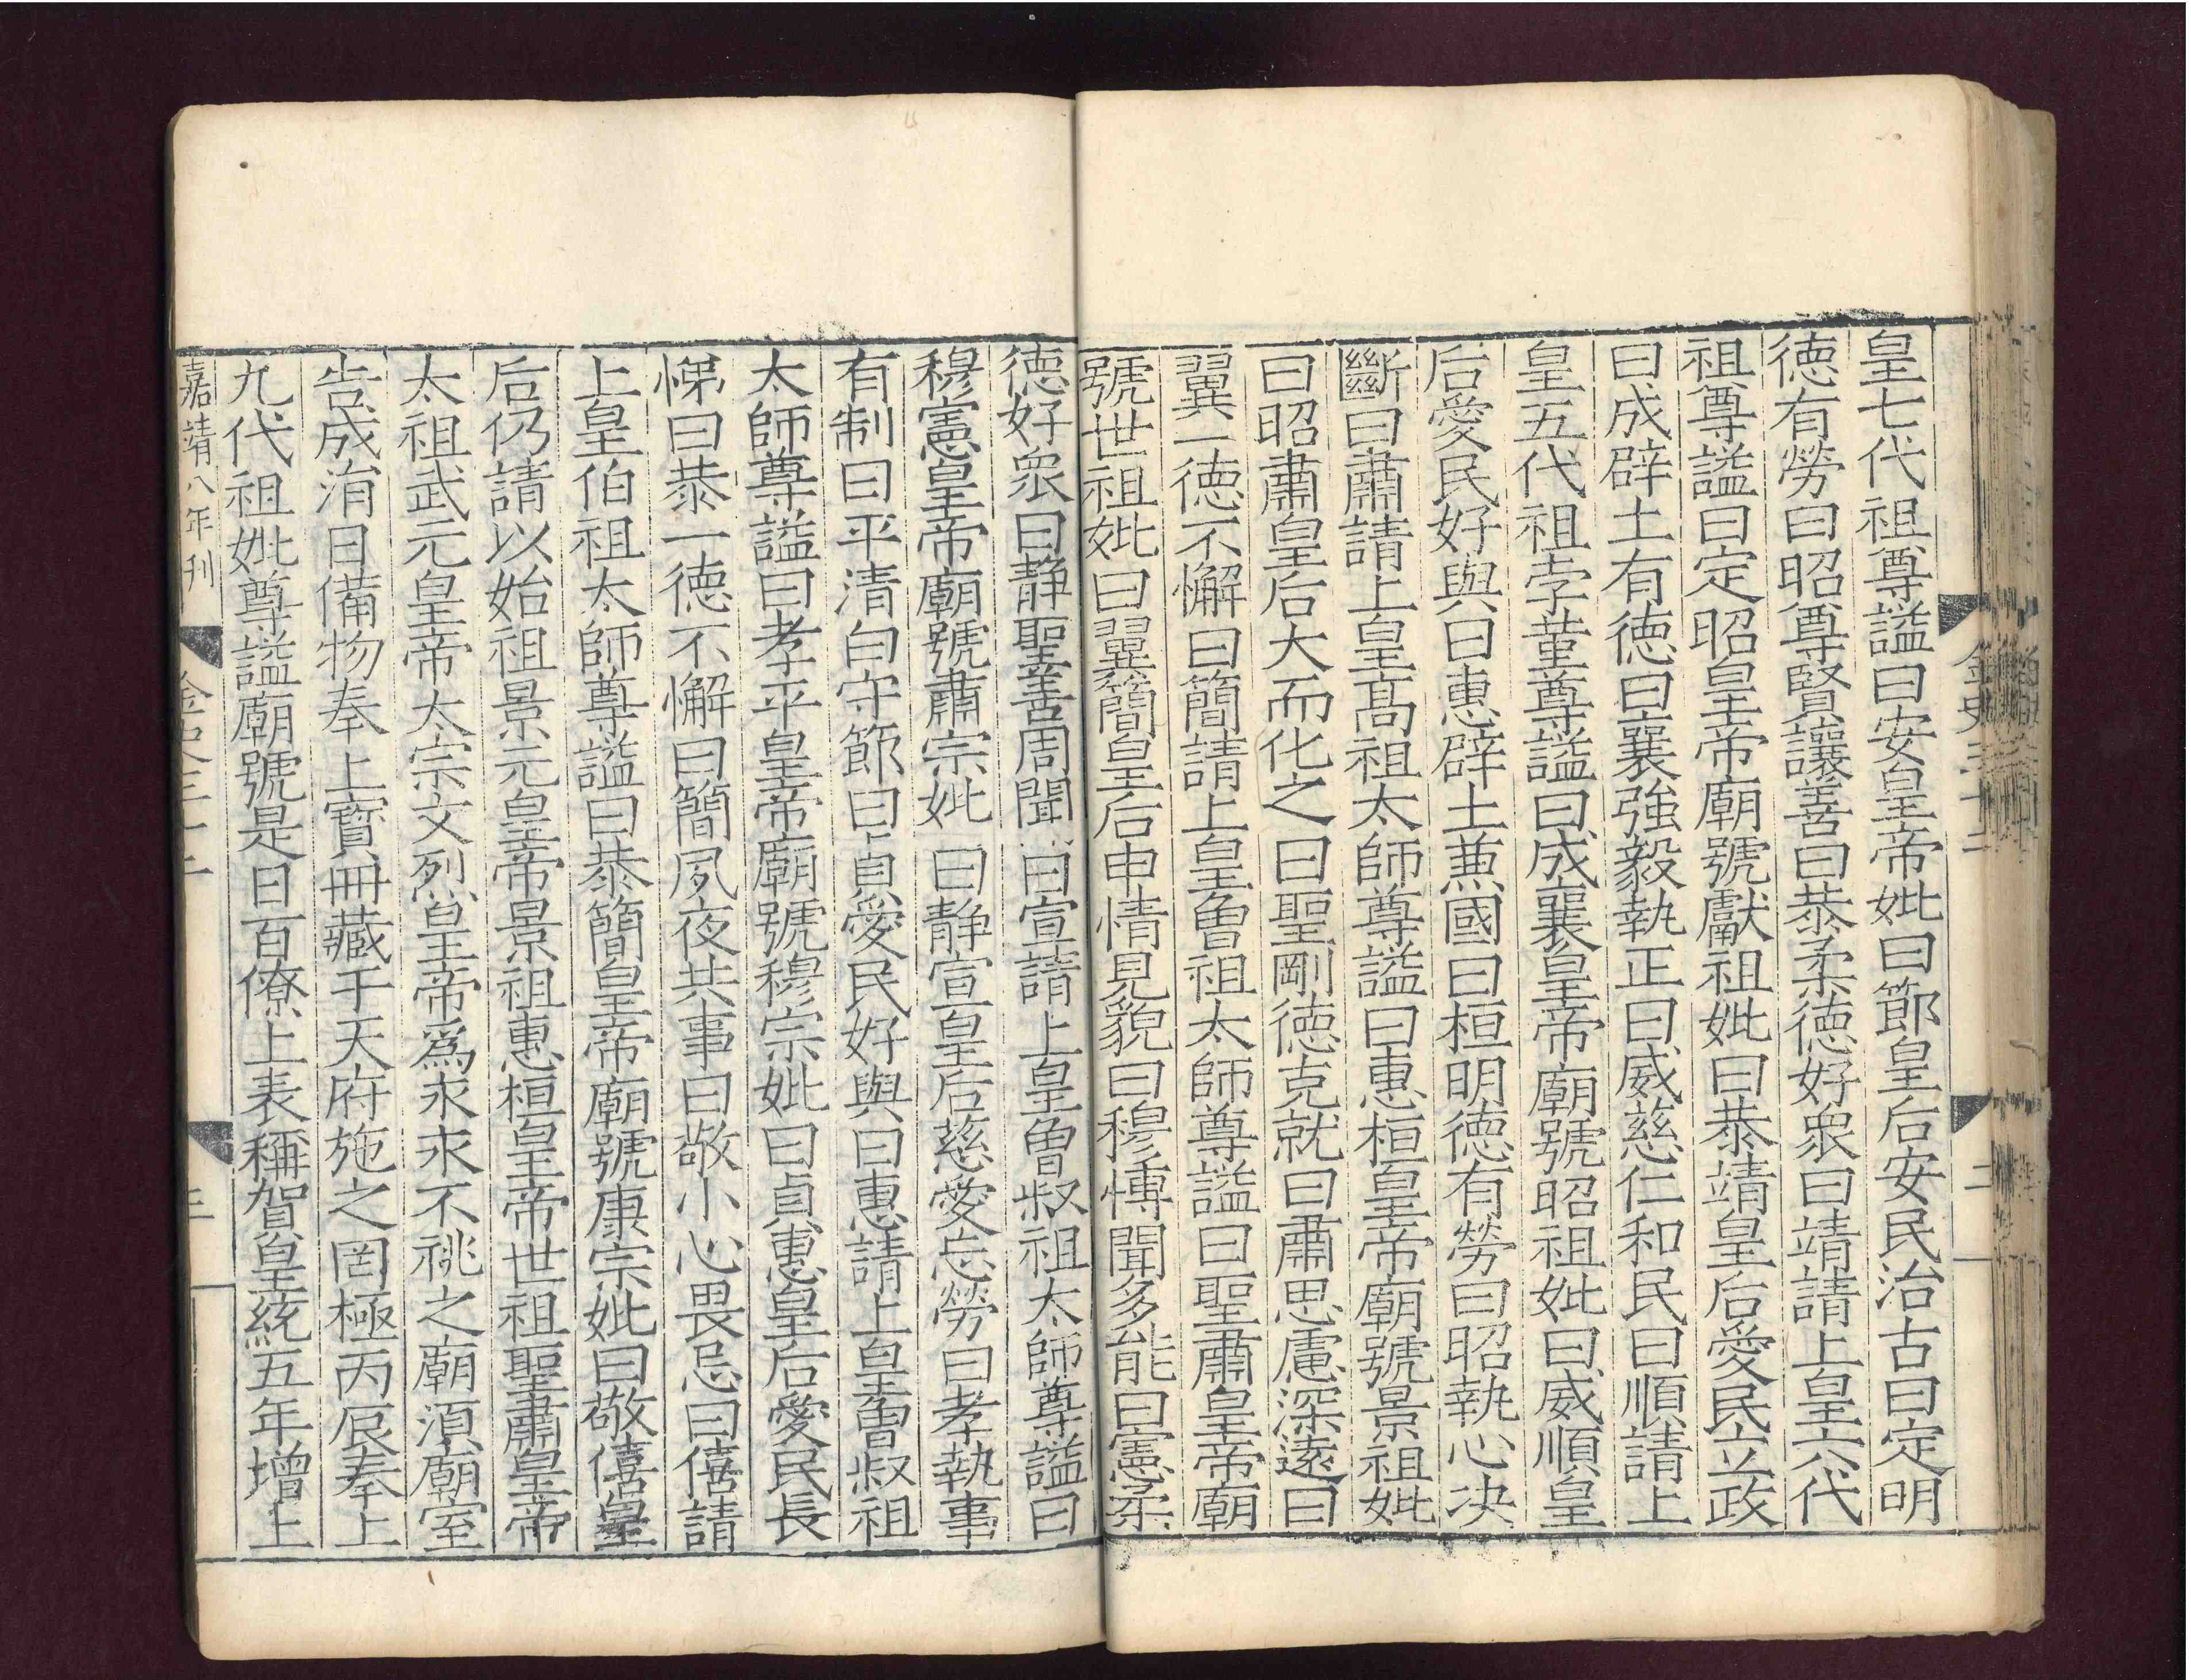 皇七代祖尊謚曰安皇帝妣曰節皇后安民治古曰定明
德有勞曰昭尊賢讓善曰恭柔德好衆曰靖請上皇六代
祖尊謚曰定昭皇帝廟號獻祖妣曰恭靖皇后愛民立政
曰成辟土有德曰襄強毅執正曰威慈仁和民曰順請上
皇五代祖孛菫尊謚曰成襄皇帝廟號昭祖妣曰威順皇
后愛民好與曰惠辟土兼國曰桓明德有勞曰昭執心決
斷曰肅請上皇高祖太師尊謚曰惠桓皇帝廟號景祖妣
曰昭肅皇后大而化之曰聖剛德克就曰肅思慮深遠曰
翼一德不懈曰簡請上皇曾祖太師尊謚曰聖肅皇帝廟
號世祖妣曰翼簡皇后申情見貌曰穆博聞多能曰憲柔
德好衆曰靜聖善周聞曰宣請上皇曾叔祖太師尊謚曰
穆憲皇帝廟號肅宗妣曰靜宣皇后慈愛忘勞曰孝執事
有制曰平清白守節曰貞愛民好與曰惠請上皇曾叔祖
太師尊謚曰孝平皇帝廟號穆宗妣曰貞惠皇后愛民長
悌曰恭一德不懈曰簡夙夜共事曰敬小心畏忌曰僖請
上皇伯祖太師尊謚曰恭簡皇帝廟號康宗妣曰敬僖皇
后仍請以始祖景元皇帝景祖惠桓皇帝世祖聖肅皇帝
太祖武元皇帝太宗文烈皇帝爲永永不祧之廟須廟室
告成涓日備物奉上寶冊藏于天府施之罔極丙辰奉上
九代祖妣尊謚廟號是日百僚上表稱賀皇統五年增上
嘉靖八年刊
金史三十二
三